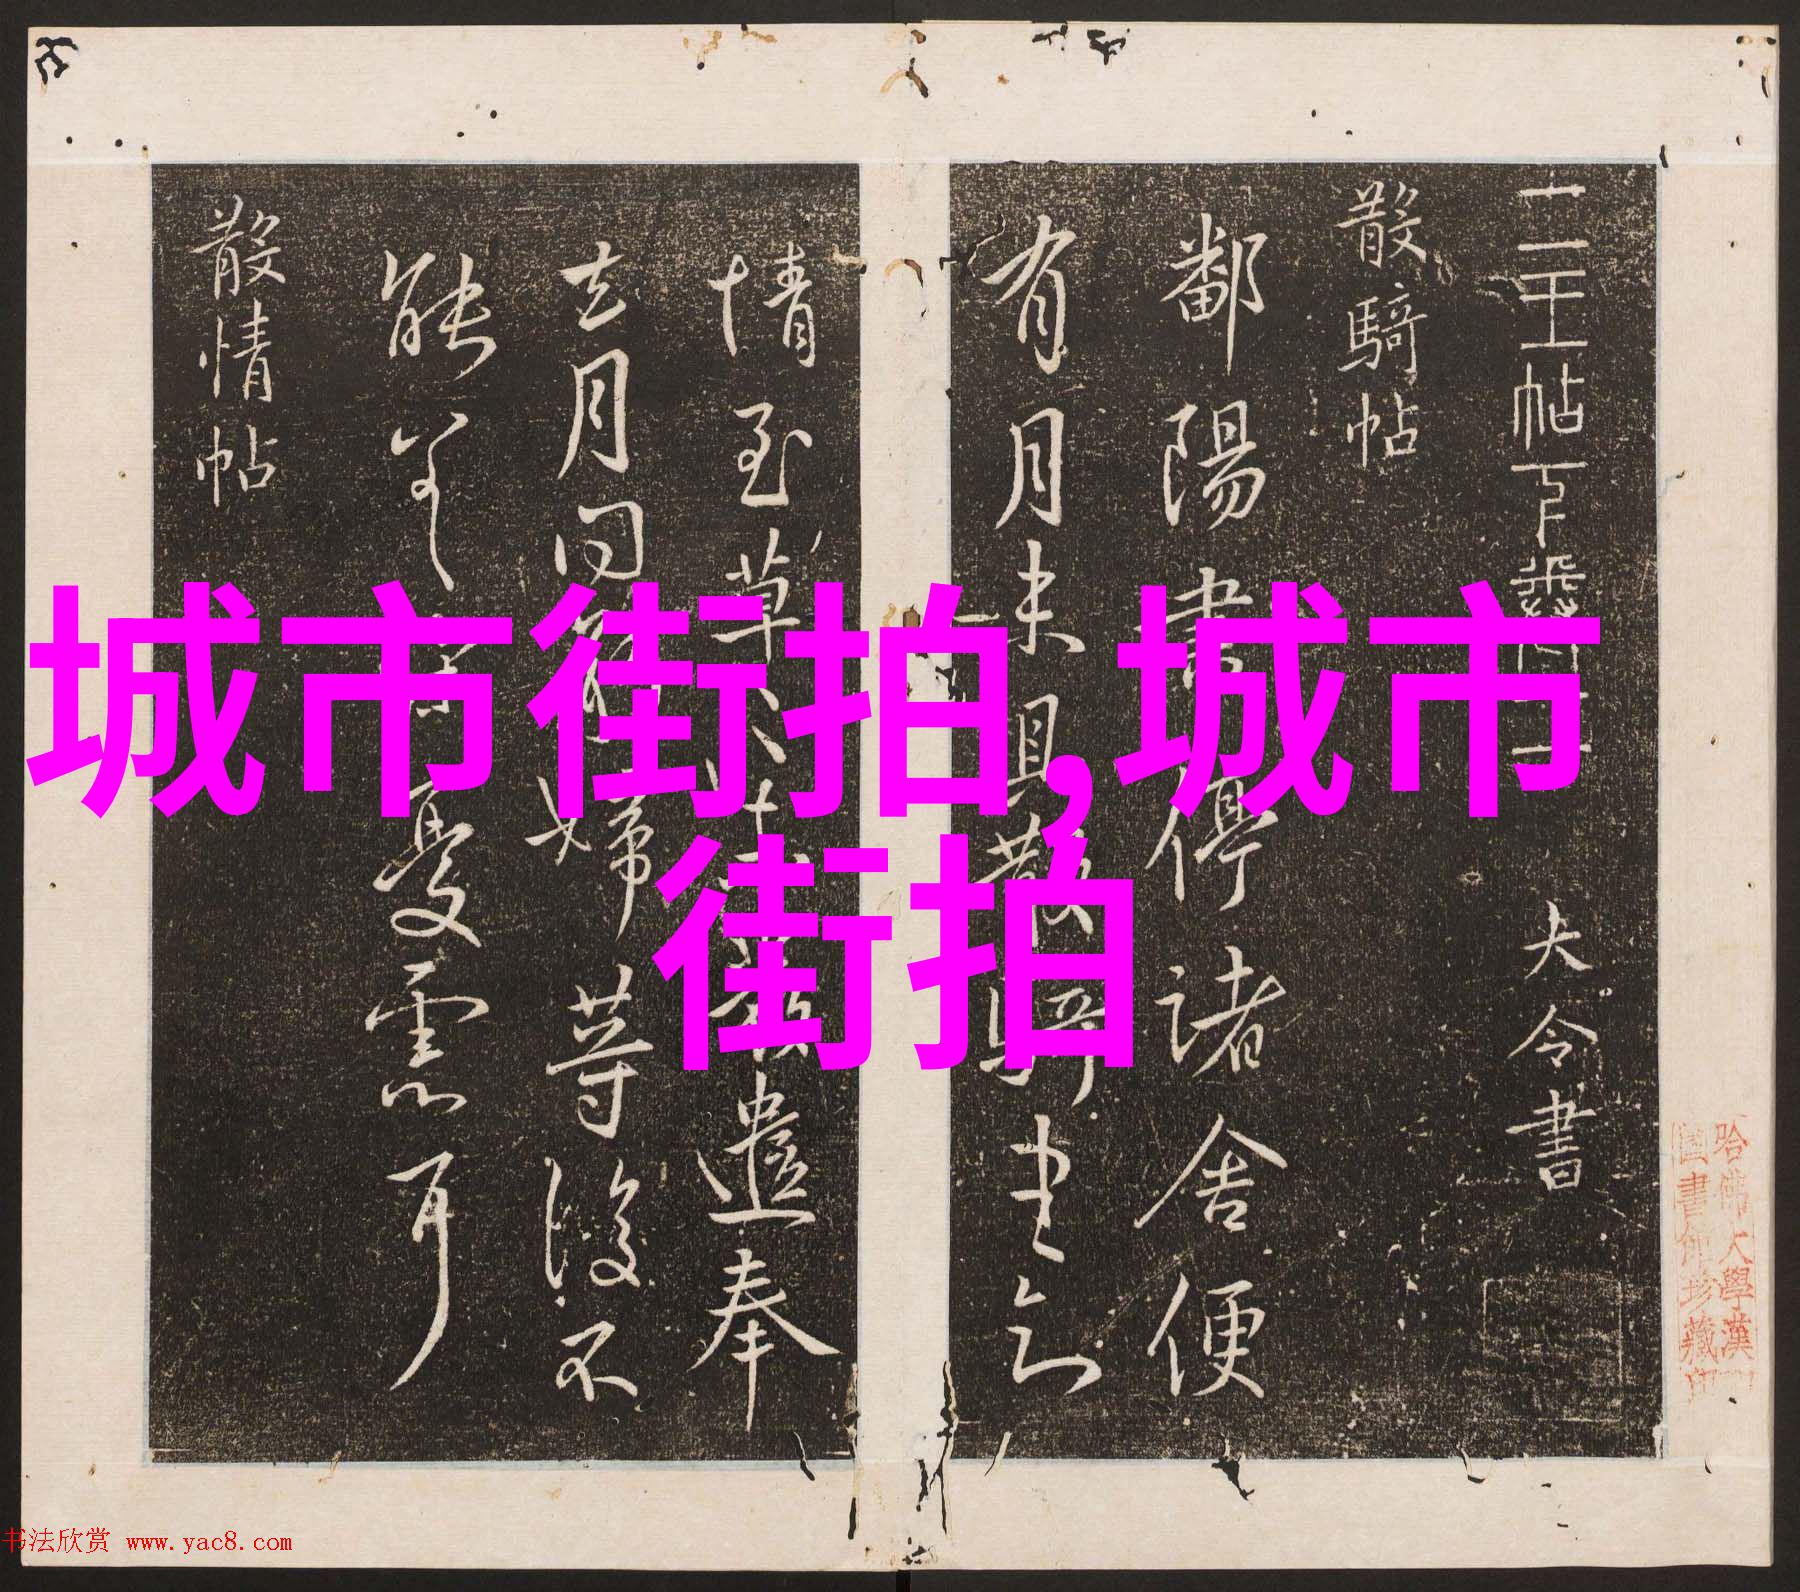 城市街拍,城市
街拍
二王帖下
大令書
散騎帖
鄱陽書停諸舍便
有月未具散騎
情至草
遣奉
去月
婦等後不
能
憂懸耳
散情帖
哈佛大學漢
圖書館珍藏印
书法欣赏 www.yac8.com